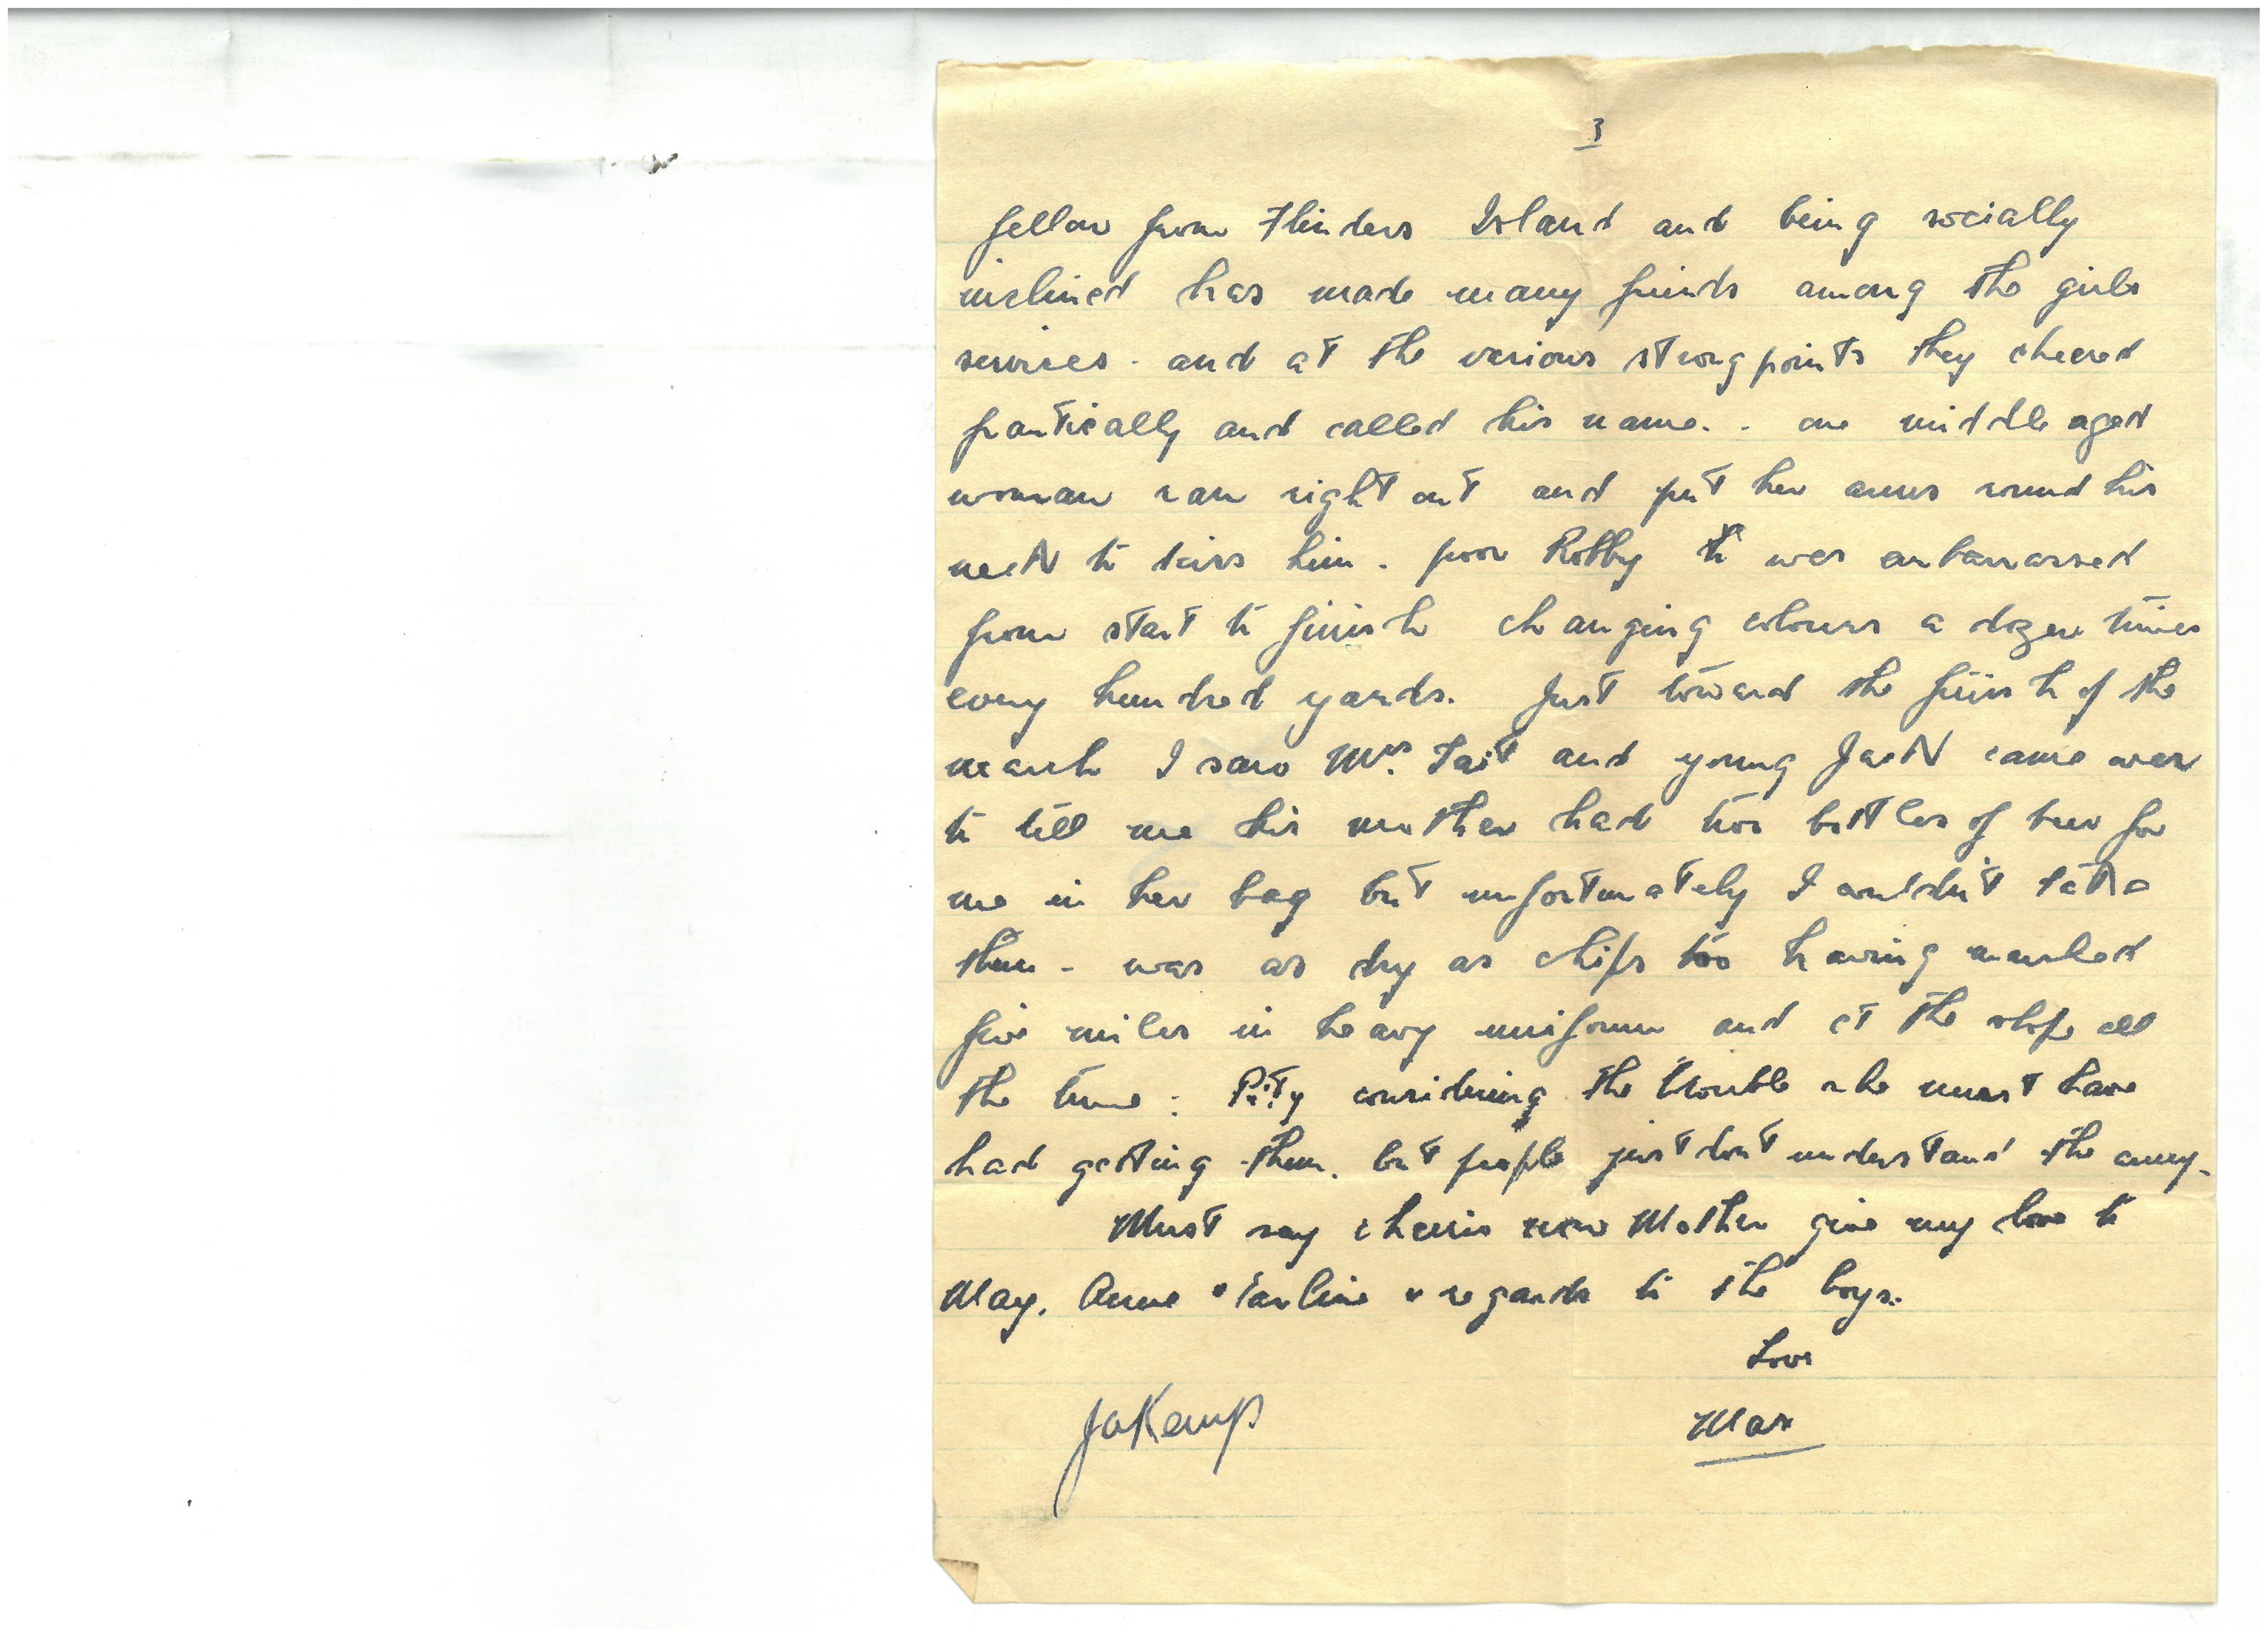 3
fellow from Flinders Island and being socially
inclined has made many friends among the girls
services - and at the various strong points they cheered
frantically and called his name. - one middle aged
woman ran right out and put her arms round his
neck to kiss him - poor Robby was embarrassed
from start to finish changing colours a dozen times
every hundred yards. Just toward the finish of the
march I saw Mrs. Tait and young Jack came over
to tell me his mother had two bottles of beer for
me in her bag but unfortunately I couldn't take
them - was as dry as chips too having marched
five miles in heavy uniform and at the slope all
the time : Pity considering the trouble she must have
had getting them. but people just dont understand the army.
Must say cheerio now Mother give my love to
May. Anne & regards to the boys.
Love
Max
JoKemp